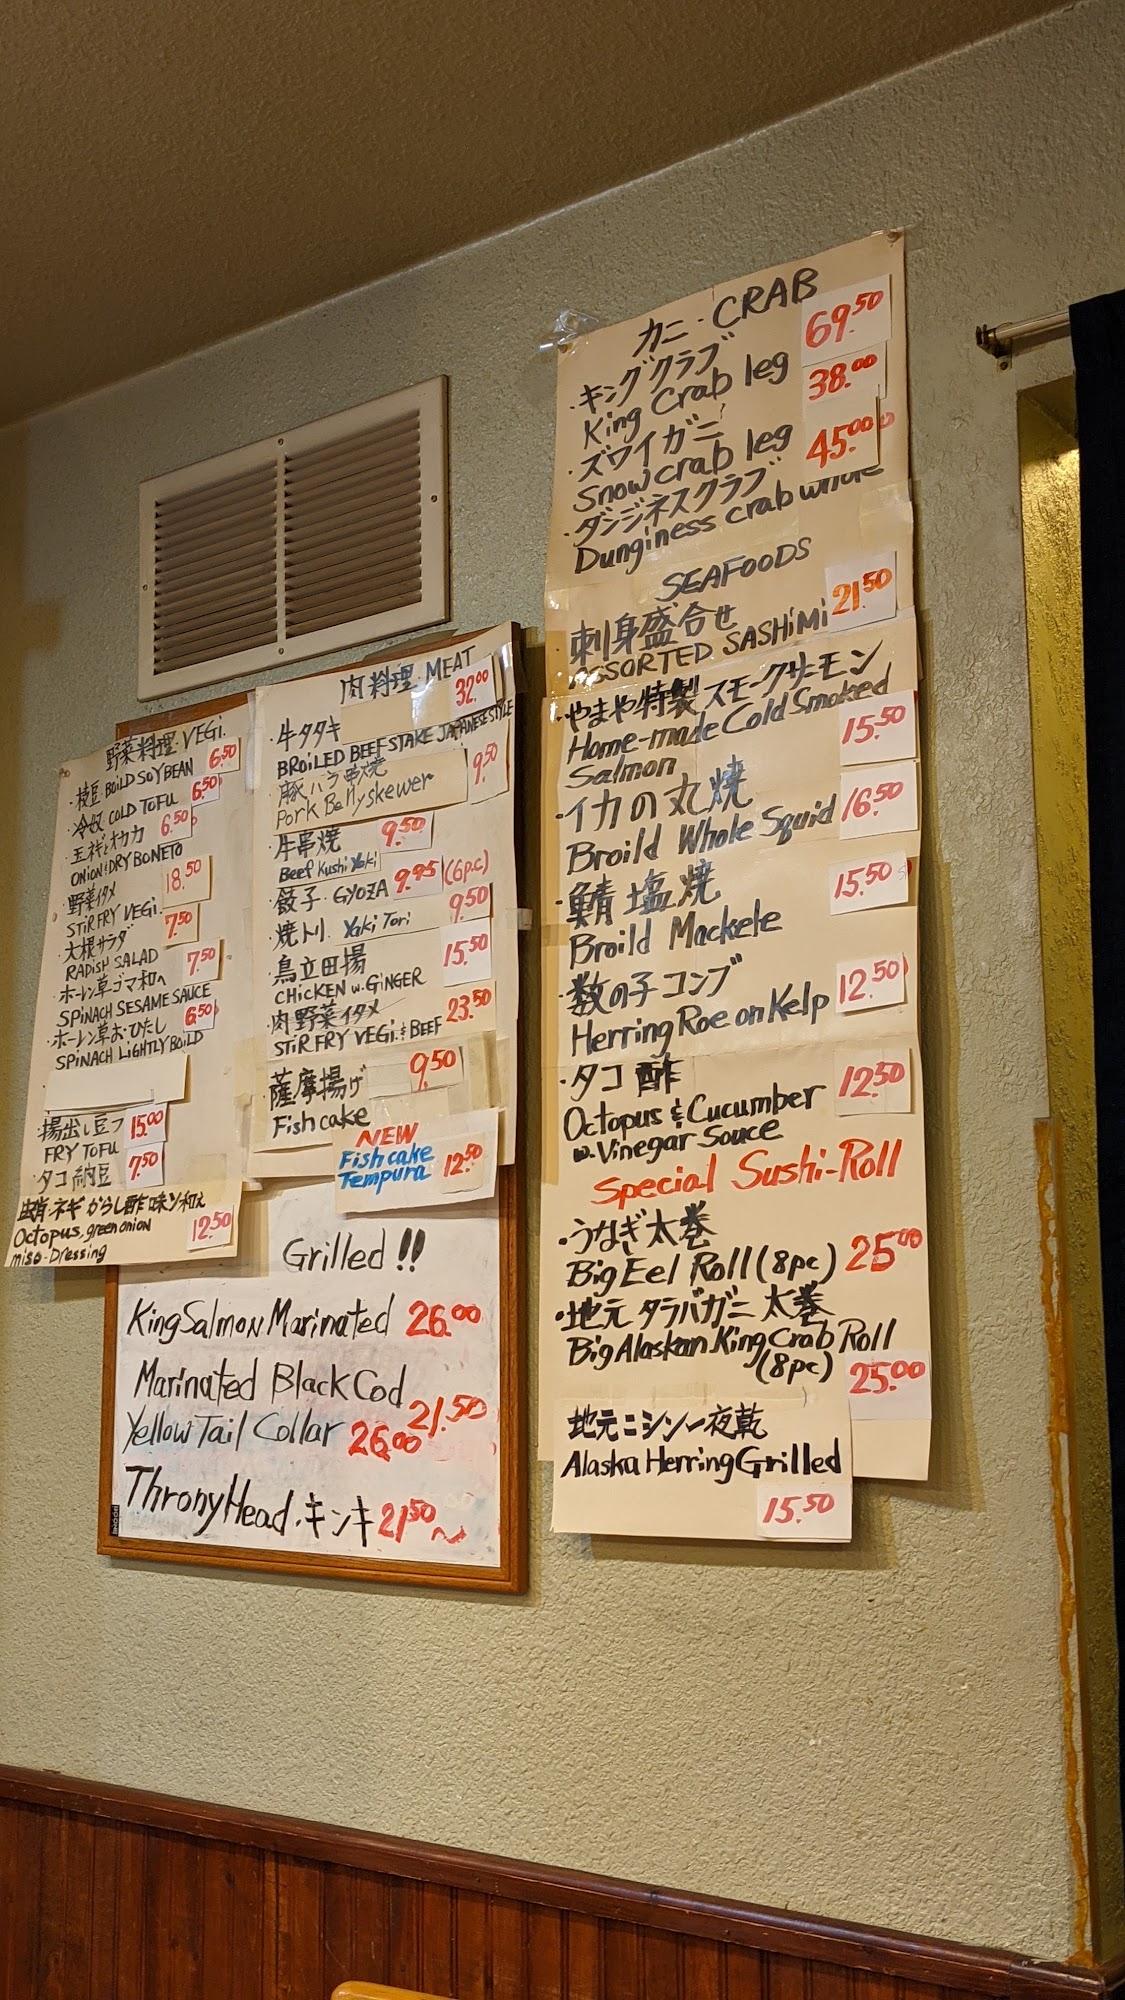 野菜料理・VEGi.
・枝豆 BOiLD SOYBEAN 6.50
・冷奴 COLD TOFU 6.50
・玉ネギとオカカ 6.50
ONiON & DRY BONETO
・野菜イタメ 18.50
STiR FRY VEGi.
・大根サラダ 7.50
RADiSH SALAD
・ホーレン草ゴマ和へ 7.50
SPiNACH SESAME SAUCE
・ホーレン草おひたし 6.50
SPiNACH LiGHTLY BOiLD
・揚出し豆フ 15.00
FRY TOFU
・タコ納豆 7.50
ネギからし酢味ソ和え
Octopus, green onion 12.50
miso-Dressing
肉料理・MEAT
・牛タタキ 32.00
BROiLED BEEF STAKE JAPANESE STYLE
豚バラ串焼 9.50
Pork Bellyskewer
・牛串焼 9.50
Beef Kushi Yaki
・餃子・GYOZA 9.95 (6p.c)
・焼トリ Yaki Tori 9.50
・鳥立田揚 15.50
CHiCKEN w. GiNGER
・肉野菜イタメ 23.50
STiR FRY VEGi. & BEEF
・薩摩揚げ 9.50
Fish cake
NEW
Fish cake
Tempura 12.50
Grilled !!
King Salmon Marinated 26.00
Marinated Black Cod
21.50
Yellow Tail Collar 26.00
Throny Head・キンキ 21.50~
カニ・CRAB
・キングクラブ 69.50
King Crab leg
・ズワイガニ 38.00
Snow crab leg
・ダンジネスクラブ 45.00
Dunginess crab whole
SEAFOODS
・刺身盛合せ 21.50
ASSORTED SASHiMi
・やまや特製スモークサーモン
Home-made Cold Smoked
Salmon 15.50
・イカの丸焼
Broild Whole Squid 16.50
・鯖塩焼 15.50
Broild Mackele
・数の子コンブ
Herring Roe on Kelp 12.50
・タコ酢 12.50
Octopus & Cucumber
w. Vinegar Souce
Special Sushi-Roll
・うなぎ太巻
Big Eel Roll (8pc) 25.00
・地元タラバガニ太巻
Big Alaskan King Crab Roll
(8pc) 25.00
地元ニシン一夜乾
Alaska Herring Grilled
15.50